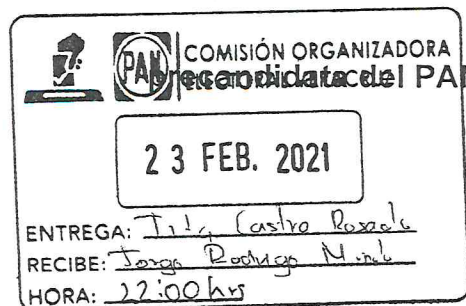 COMISIÓN ORGANIZADORA
PAN precandidata del PA
23 FEB. 2021
ENTREGA: Castro Rosado
RECIBE: Jorge Rodrigo
HORA: 22:00 hrs